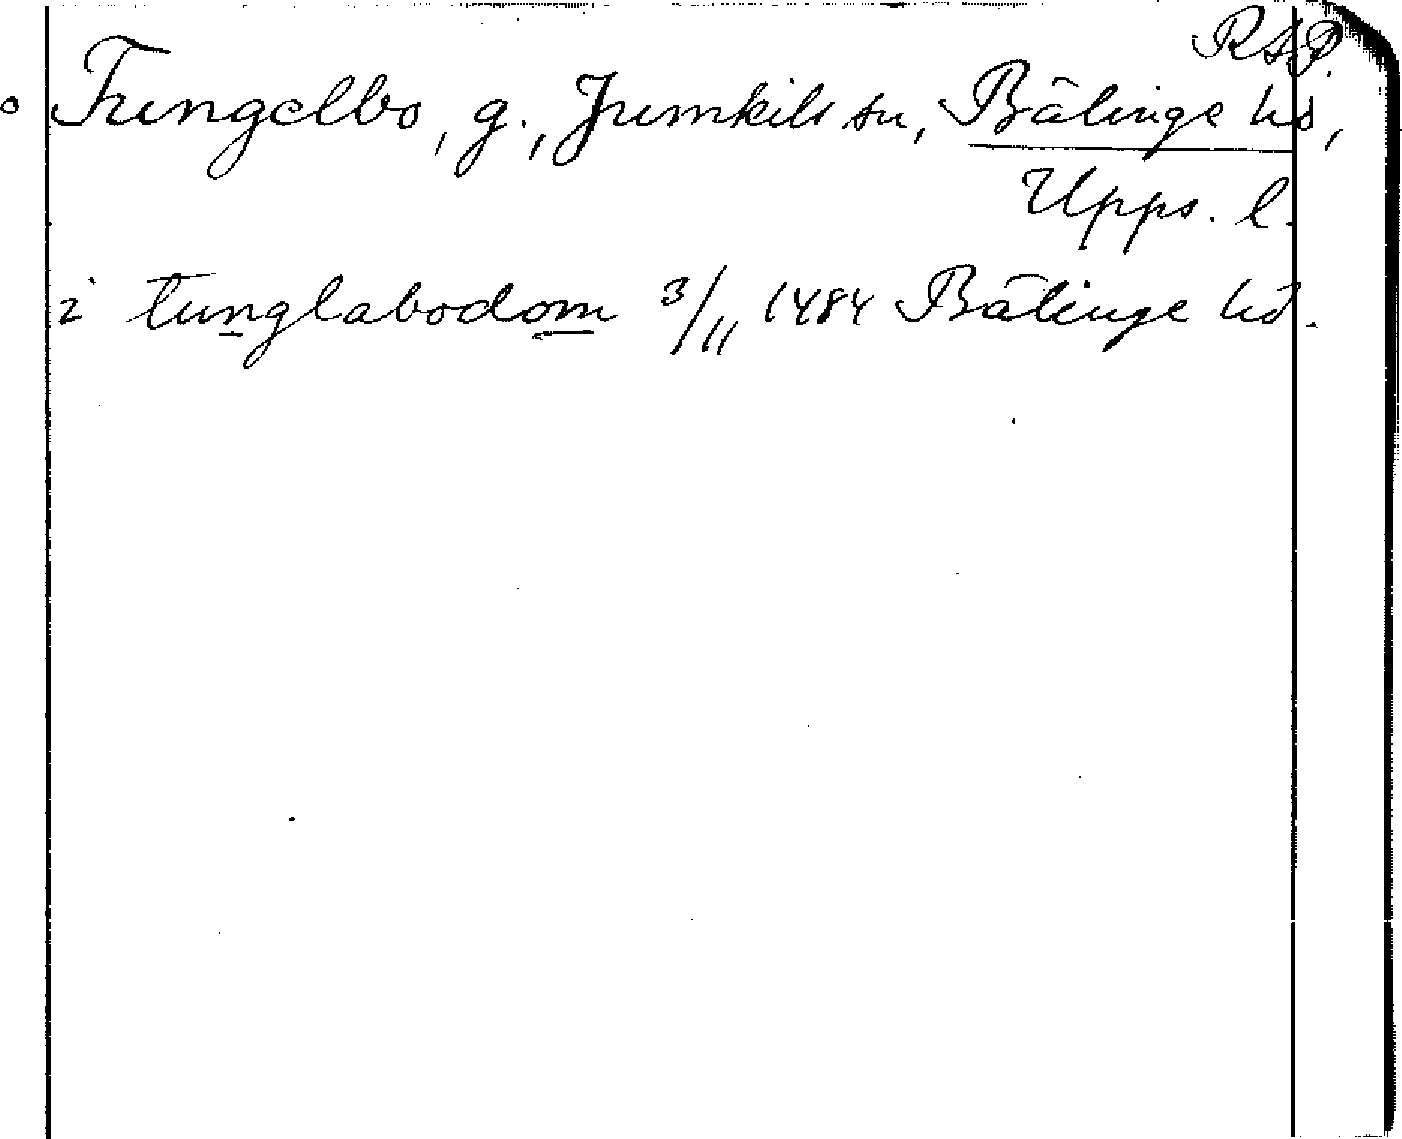 RAP.
Tungelbo, g., Jumkils sn, Bälinge hd,
Upps. l.
i tunglabodom 3/11 1484 Bälinge hd.